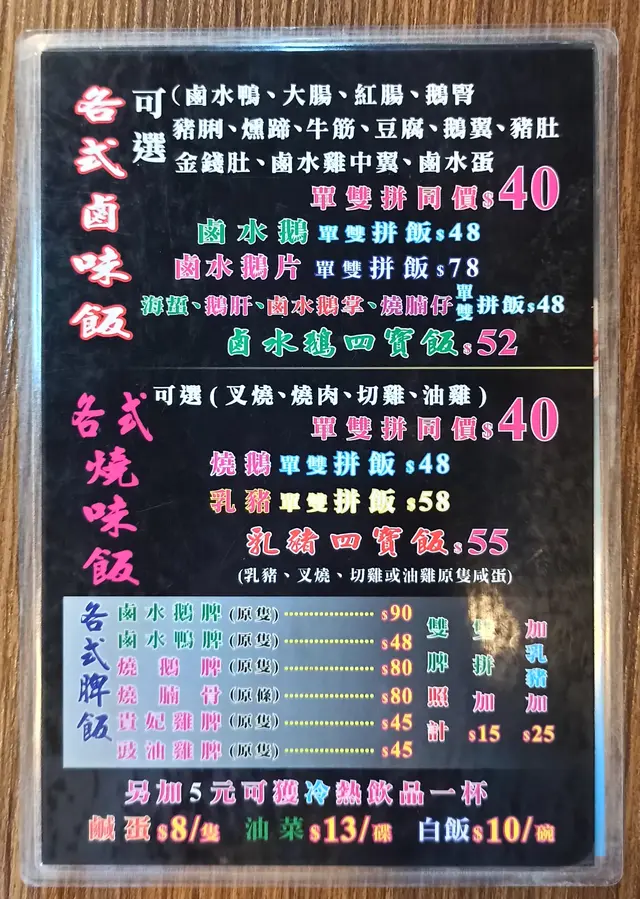 各式鹵味飯
可選
(鹵水鴨、大腸、紅腸、鵝腎
豬脷、燻蹄、牛筋、豆腐、鵝翼、豬肚
金錢肚、鹵水雞中翼、鹵水蛋
單雙拼同價$40
鹵水鵝 單雙拼飯$48
鹵水鵝片 單雙拼飯$78
海蜇、鵝肝、鹵水鵝掌、燒腩仔 單雙拼飯$48
鹵水鵝四寶飯$52
各式燒味飯
可選(叉燒、燒肉、切雞、油雞)
單雙拼同價$40
燒鵝 單雙拼飯 $48
乳豬 單雙拼飯 $58
乳豬四寶飯$55
(乳豬、叉燒、切雞或油雞原隻咸蛋)
各式脾飯
鹵水鵝脾(原隻) $90
鹵水鴨脾(原隻) $48
燒鵝脾(原隻) $80
燒腩骨(原條) $80
貴妃雞脾(原隻) $45
豉油雞脾(原隻) $45
雙脾照計
雙拼加$15
加乳豬加$25
另加5元可獲冷熱飲品一杯
鹹蛋$8/隻 油菜$13/碟 白飯$10/碗